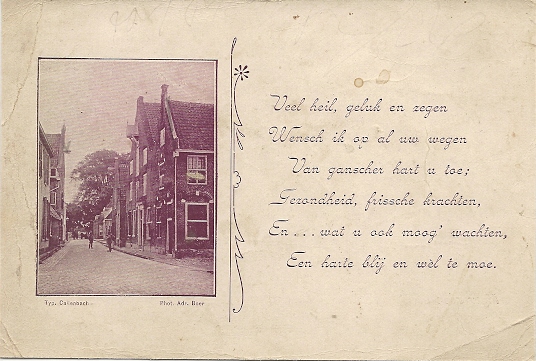 Veel heil, geluk en zegen
Wensch ik op al uw wegen
Van ganscher hart u toe;
Gezondheid, frissche krachten,
En... wat u ook moog' wachten,
Een harte blij en wèl te moe.
Typ. Callenbach
Phot. Adr. Boer